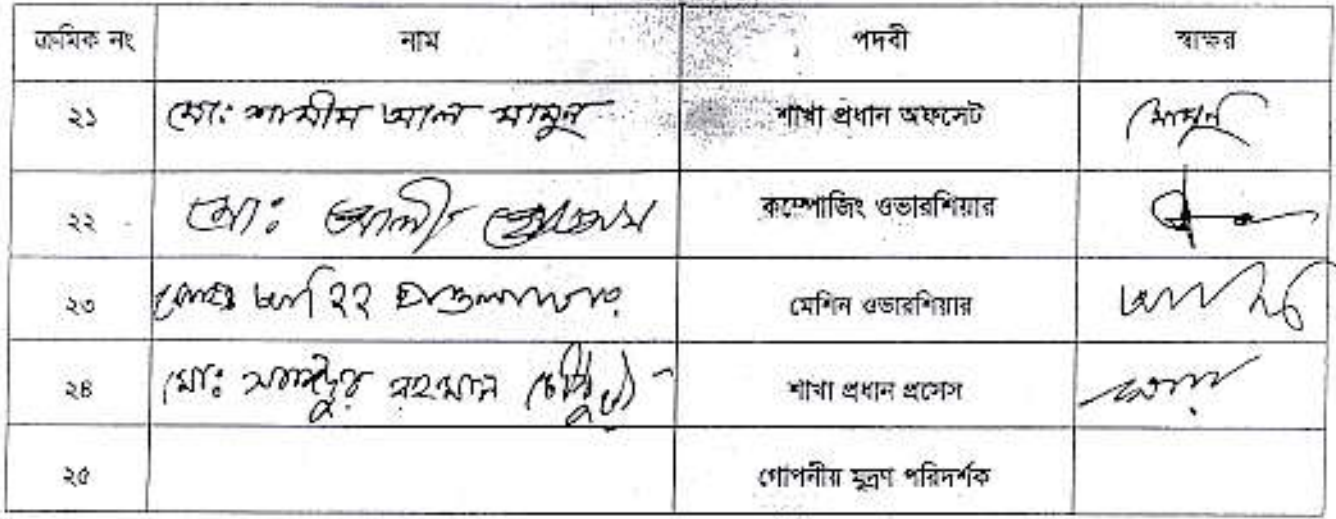 ক্রমিক নং নাম পদবী স্বাক্ষর
২১ মো: শামীম আল মামুন শাখা প্রধান অফসেট মামুন
২২ মো: আলী কম্পোজিং ওভারশিয়ার
২৩ মেশিন ওভারশিয়ার
২৪ মো: রহমান শাখা প্রধান প্রসেস
২৫ গোপনীয় মুদ্রণ পরিদর্শক